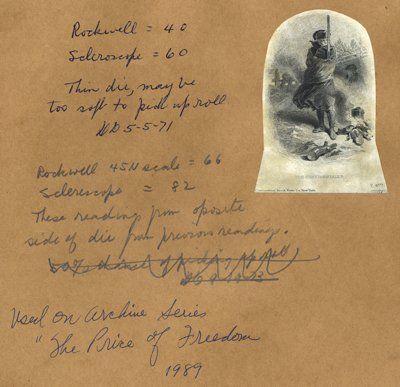 Rockwell = 40
Scleroscope = 60
Thin die, may be
too soft to pick up roll
5-5-71
Rockwell 45N scale = 66
Scleroscope = 82
These readings from oposite
side of die from previous readings.
Used on Archive Series
"The Price of Freedom
1989